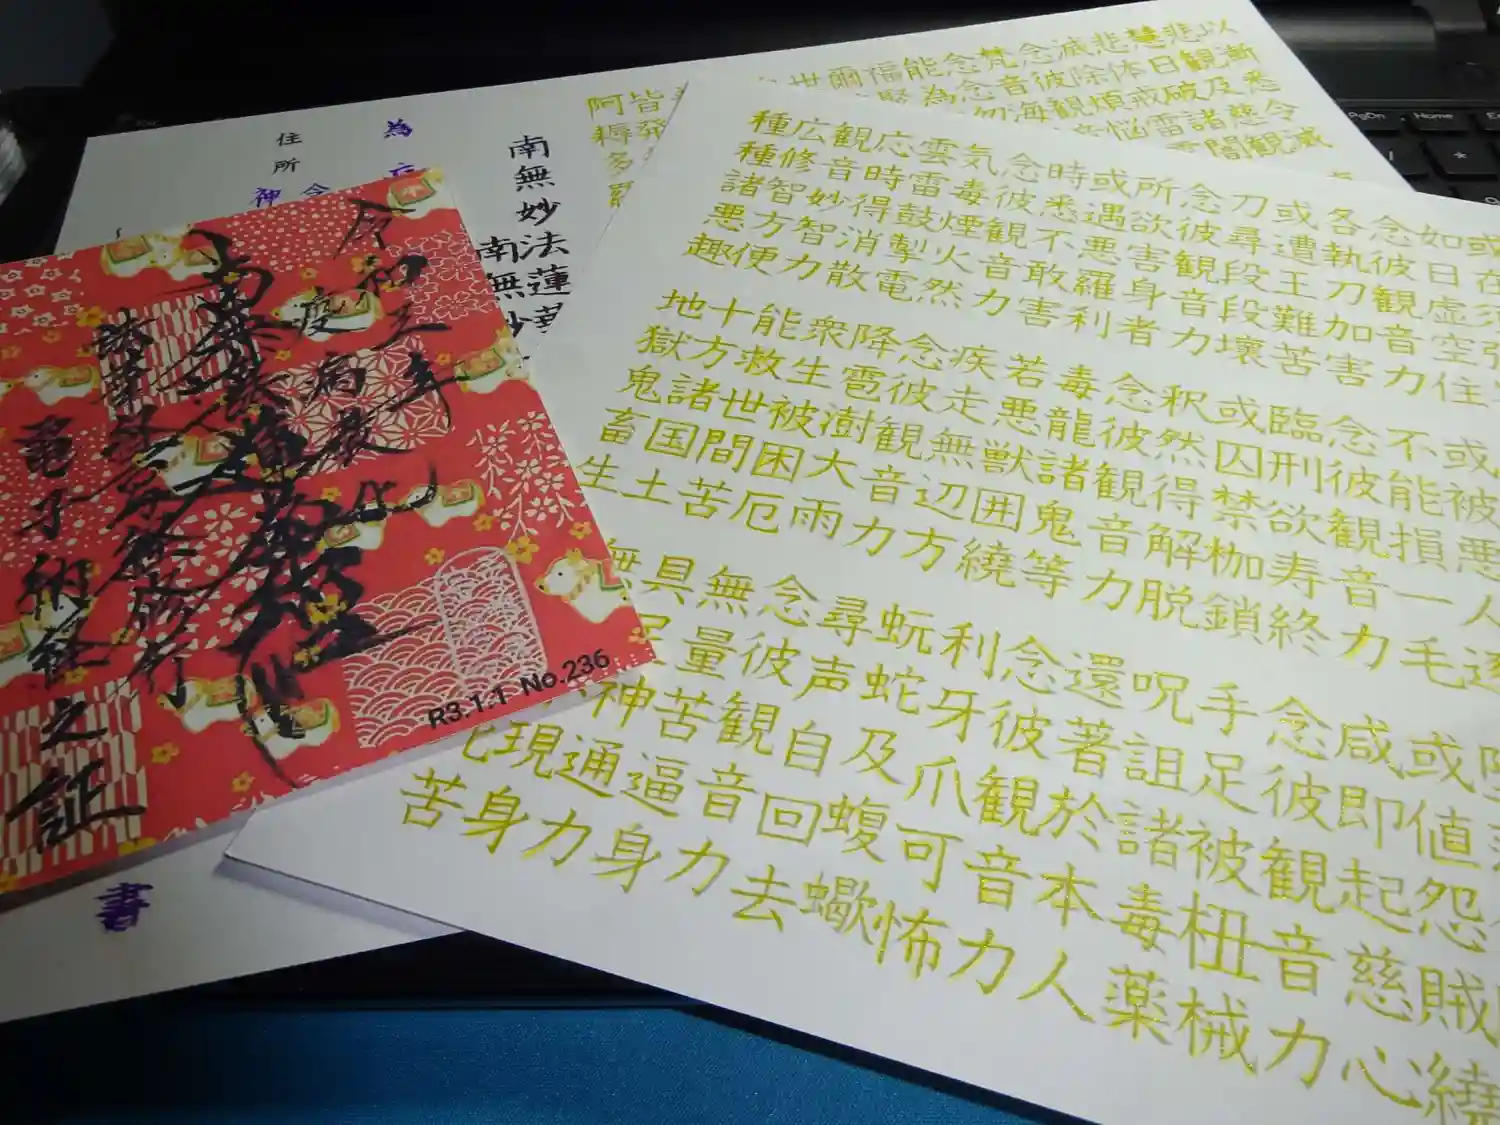 PgDn
Home
以漸悉令
悲観及慈観
慧日破諸闇
悲体戒雷
滅除煩悩
念彼観音
皆発
阿耨多羅
或在須弥
如日虚空住
念彼観音力
各執刀加害
或遭王難苦
刀尋段段壊
念彼観音力
所欲害身者
或遇悪羅利
時悉不敢害
念彼観音力
気毒煙火然
雲雷鼓掣電
応時得消散
観音妙智力
広修智方便
種種諸悪趣
或被悪人逐
不能損一毛
念彼観音力
臨刑欲寿終
或囚禁枷鎖
釈然得解脱
念彼観音力
毒龍諸鬼等
若悪獣囲繞
疾走無辺方
念彼観音力
降雹澍大雨
衆生被困厄
能救世間苦
十方諸国土
地獄鬼畜生
或値怨賊繞
咸即起慈心
念彼観音力
手足被杻械
呪詛諸毒薬
還著於本人
念彼観音力
利牙爪可怖
蚖蛇及蝮蠍
尋声自回去
念彼観音力
無量苦逼身
具足神通力
無
現身
苦
南無妙法蓮華
南無妙
為
住所
神
書
令和三年
疫病
南無妙法蓮華経
修行
電子納経之証
R3.1.1 No.236